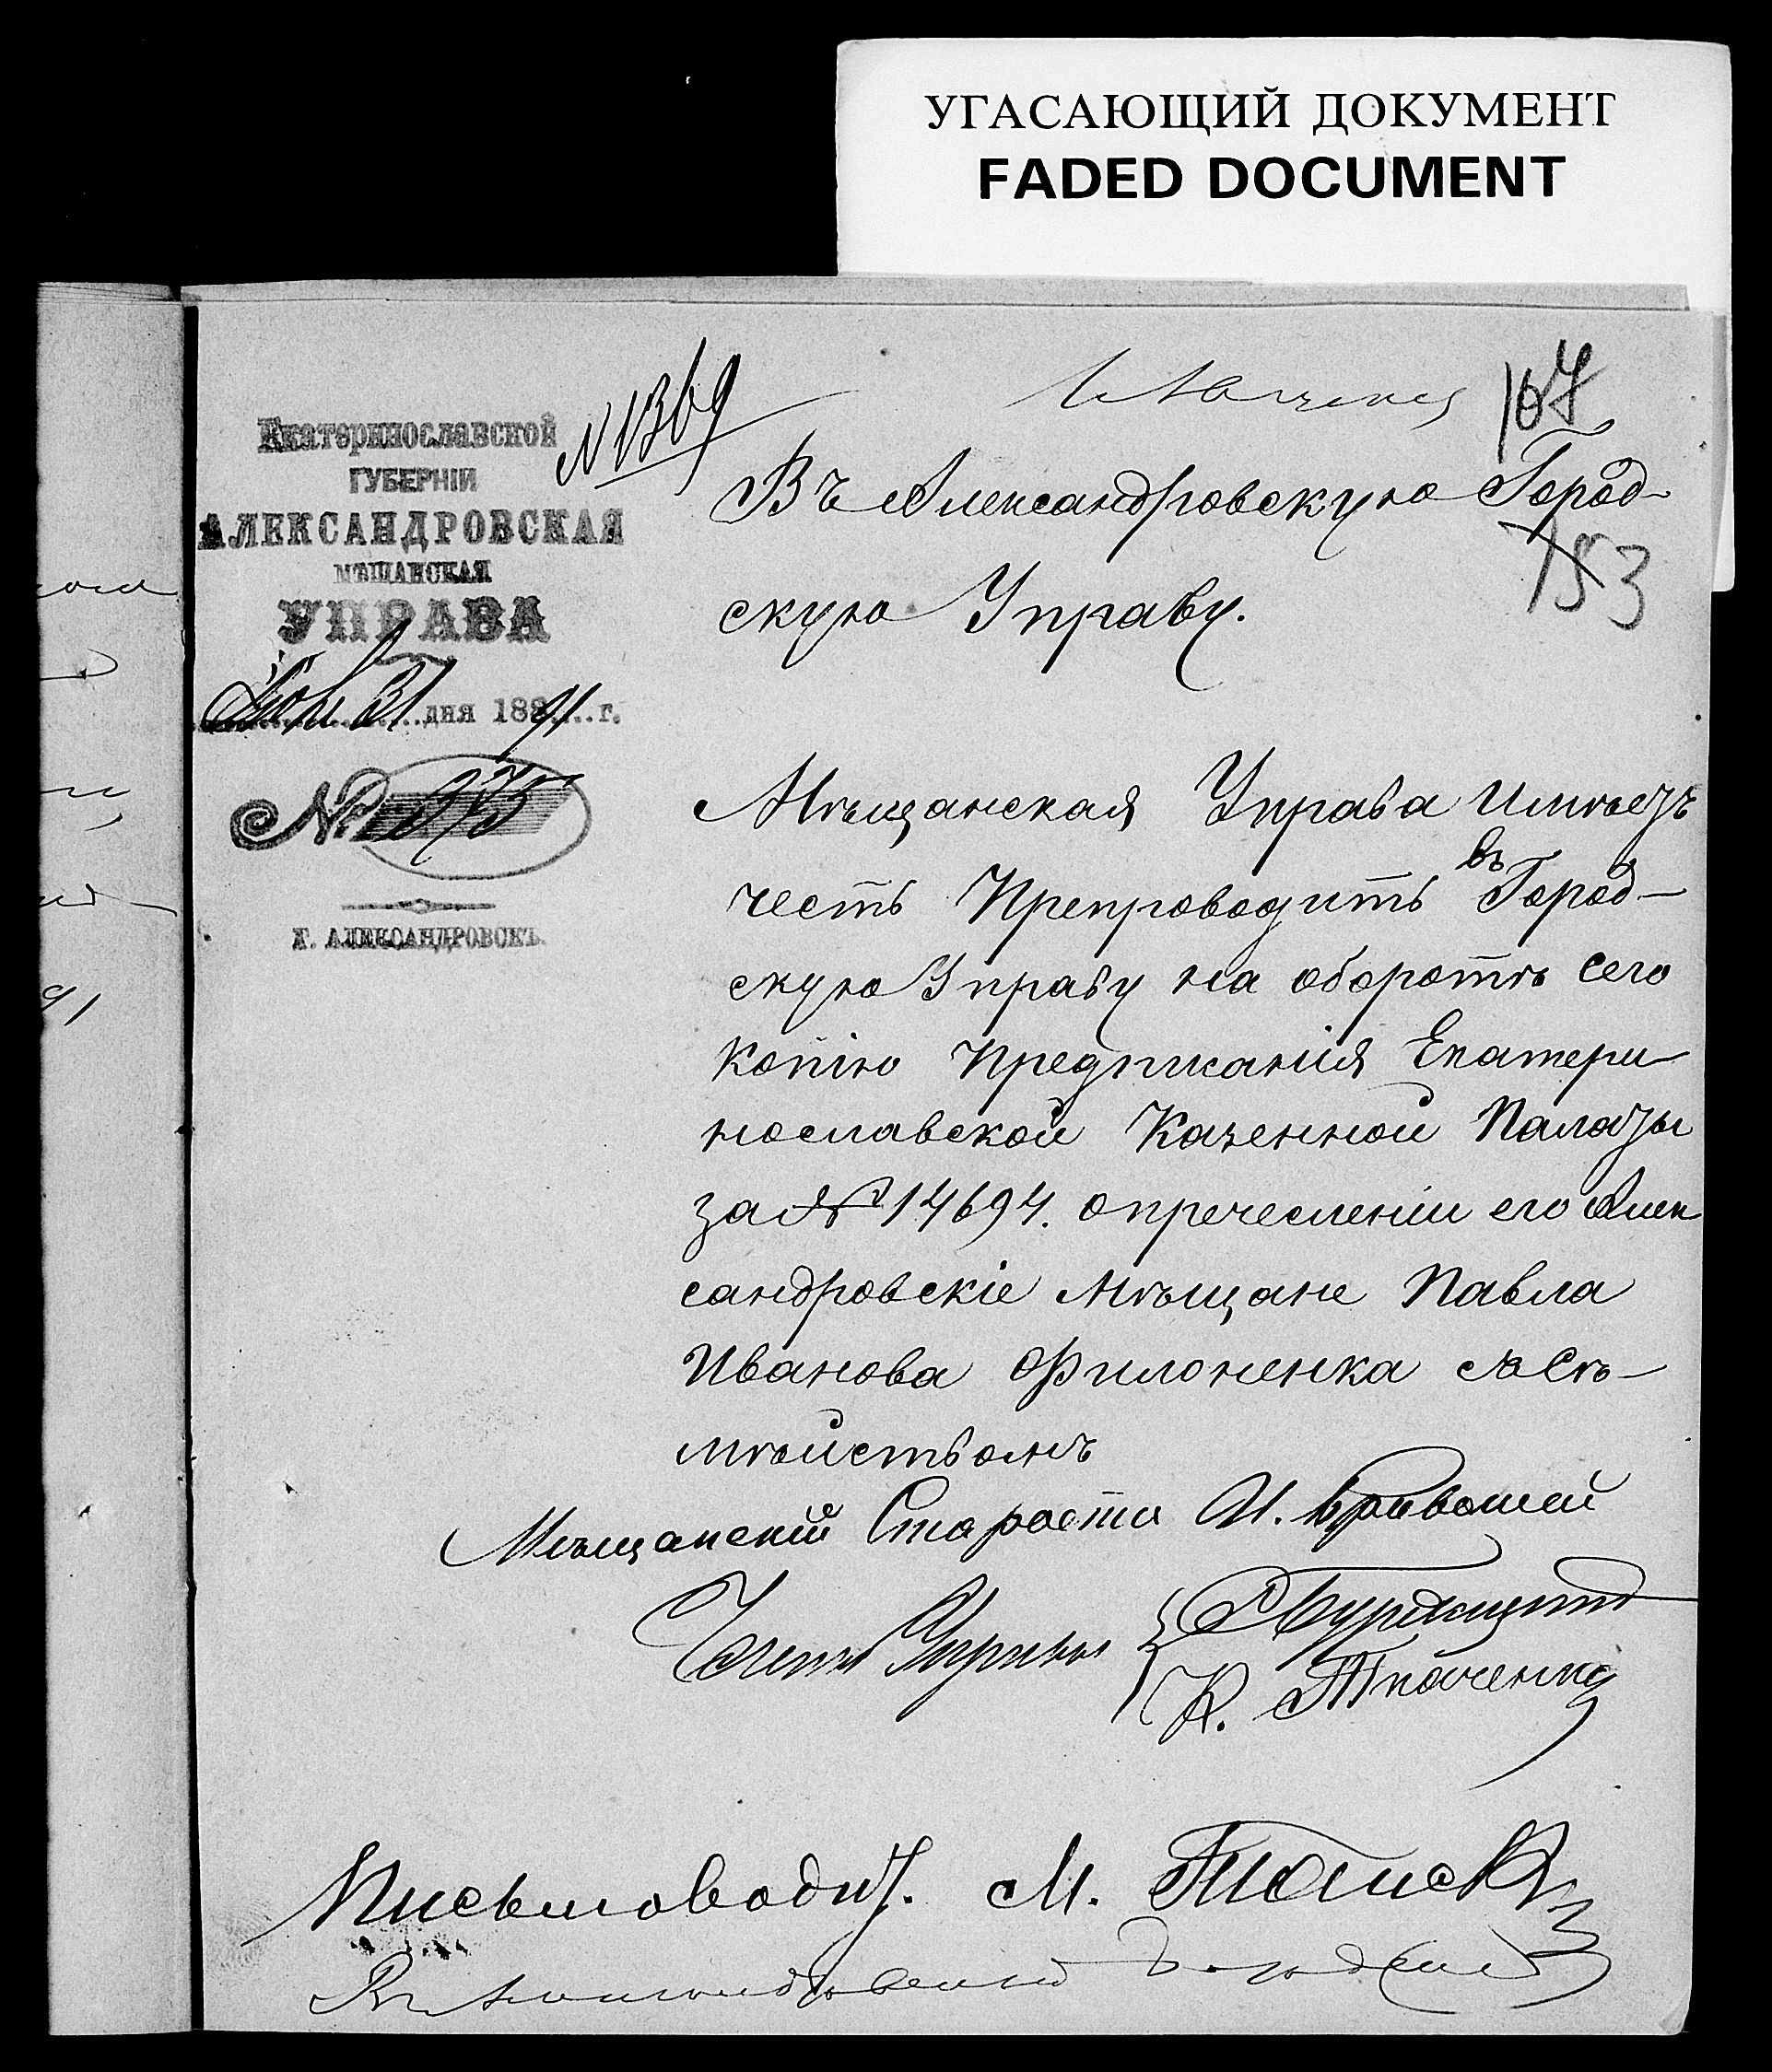 УГАСАЮЩИЙ ДОКУМЕНТ
FADED DOCUMENT
N 1369
107
153
Екатеринославской
ГУБЕРНІИ
АЛЕКСАНДРОВСКАЯ
МѢЩАНСКАЯ
УПРАВА
31 дня 1891 г.
№ 975
Г. АЛЕКСАНДРОВСКЪ.
Въ Александровскую Город-
скую Управу.
Мѣщанская Управа имѣетъ
честь Препроводить въ Город-
скую Управу на оборотѣ сего
копію предписанія Екатери
нославской Казенной Палаты
за № 14694. опречесленіи его Алек
сандровскіе мѣщане Павла
Иванова Филоненка съ Сѣ-
мѣйствомъ
Мѣщанскій Староста И. Кривошей
Члены Управы
К. Ткаченко
Письмоводит. М.